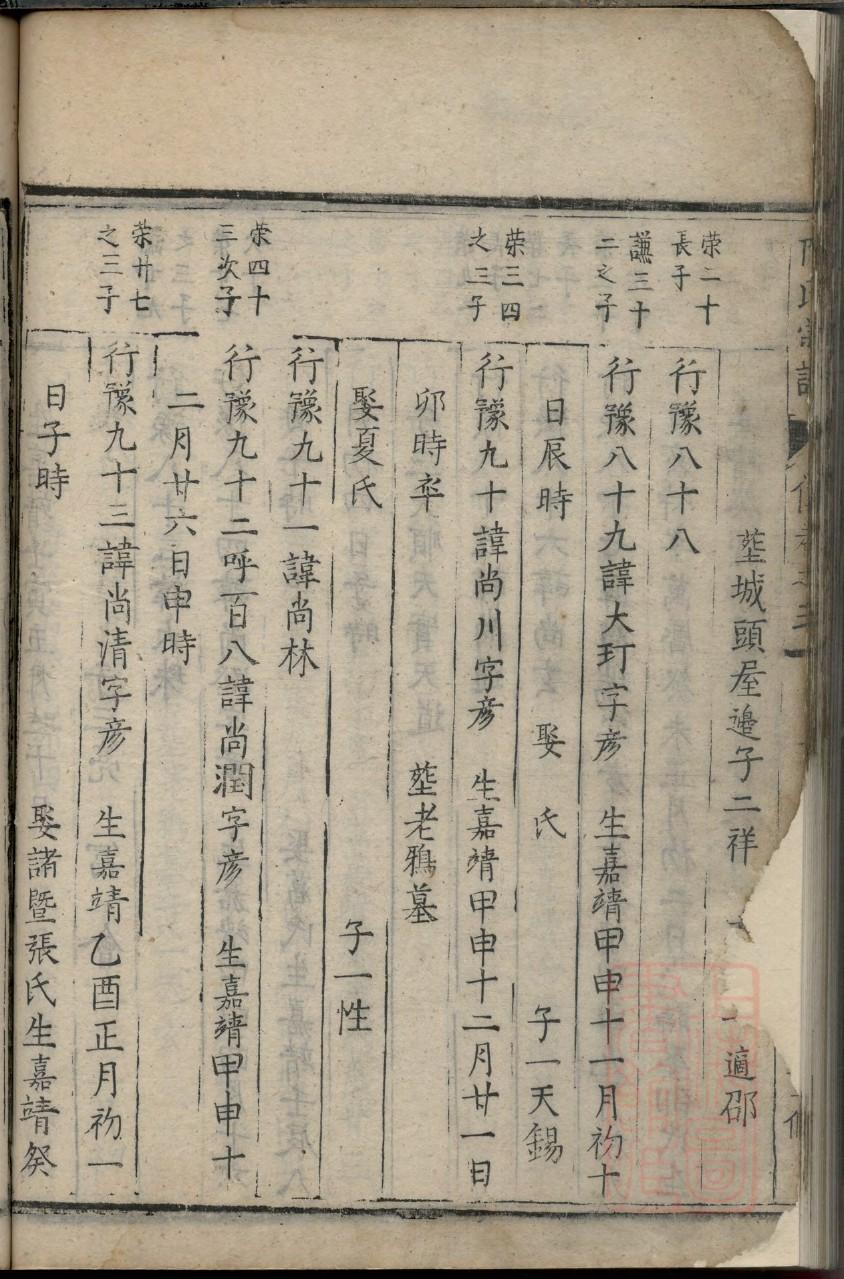 氏宗譜
塟城頭屋邉子二祥 適邵
荣二十
長子
行豫八十八
謙三十
二之子
行豫八十九諱大玎字彦 生嘉靖甲申十一月初十
日辰時 娶 氏 子一天錫
荣三四
之三子
行豫九十諱尚川字彦 生嘉靖甲申十二月廿一日
卯時卒 塟老鴉墓
娶夏氏 子一性
行豫九十一諱尚林
荣四十
三次子
行豫九十二呼百八諱尚潤字彦 生嘉靖甲申十
二月廿六日申時
荣廿七
之三子
行豫九十三諱尚清字彦 生嘉靖乙酉正月初一
日子時 娶諸暨張氏生嘉靖癸